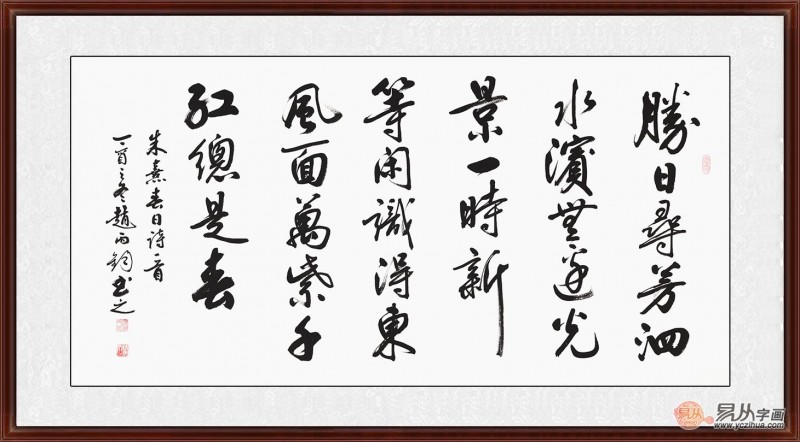 勝日尋芳泗
水濱無邊光
景一時新
等閑識得東
風面萬紫千
紅總是春
朱熹春日詩一首
丁酉之冬趙鈞书之
易从
易从字画
www.yczihua.com